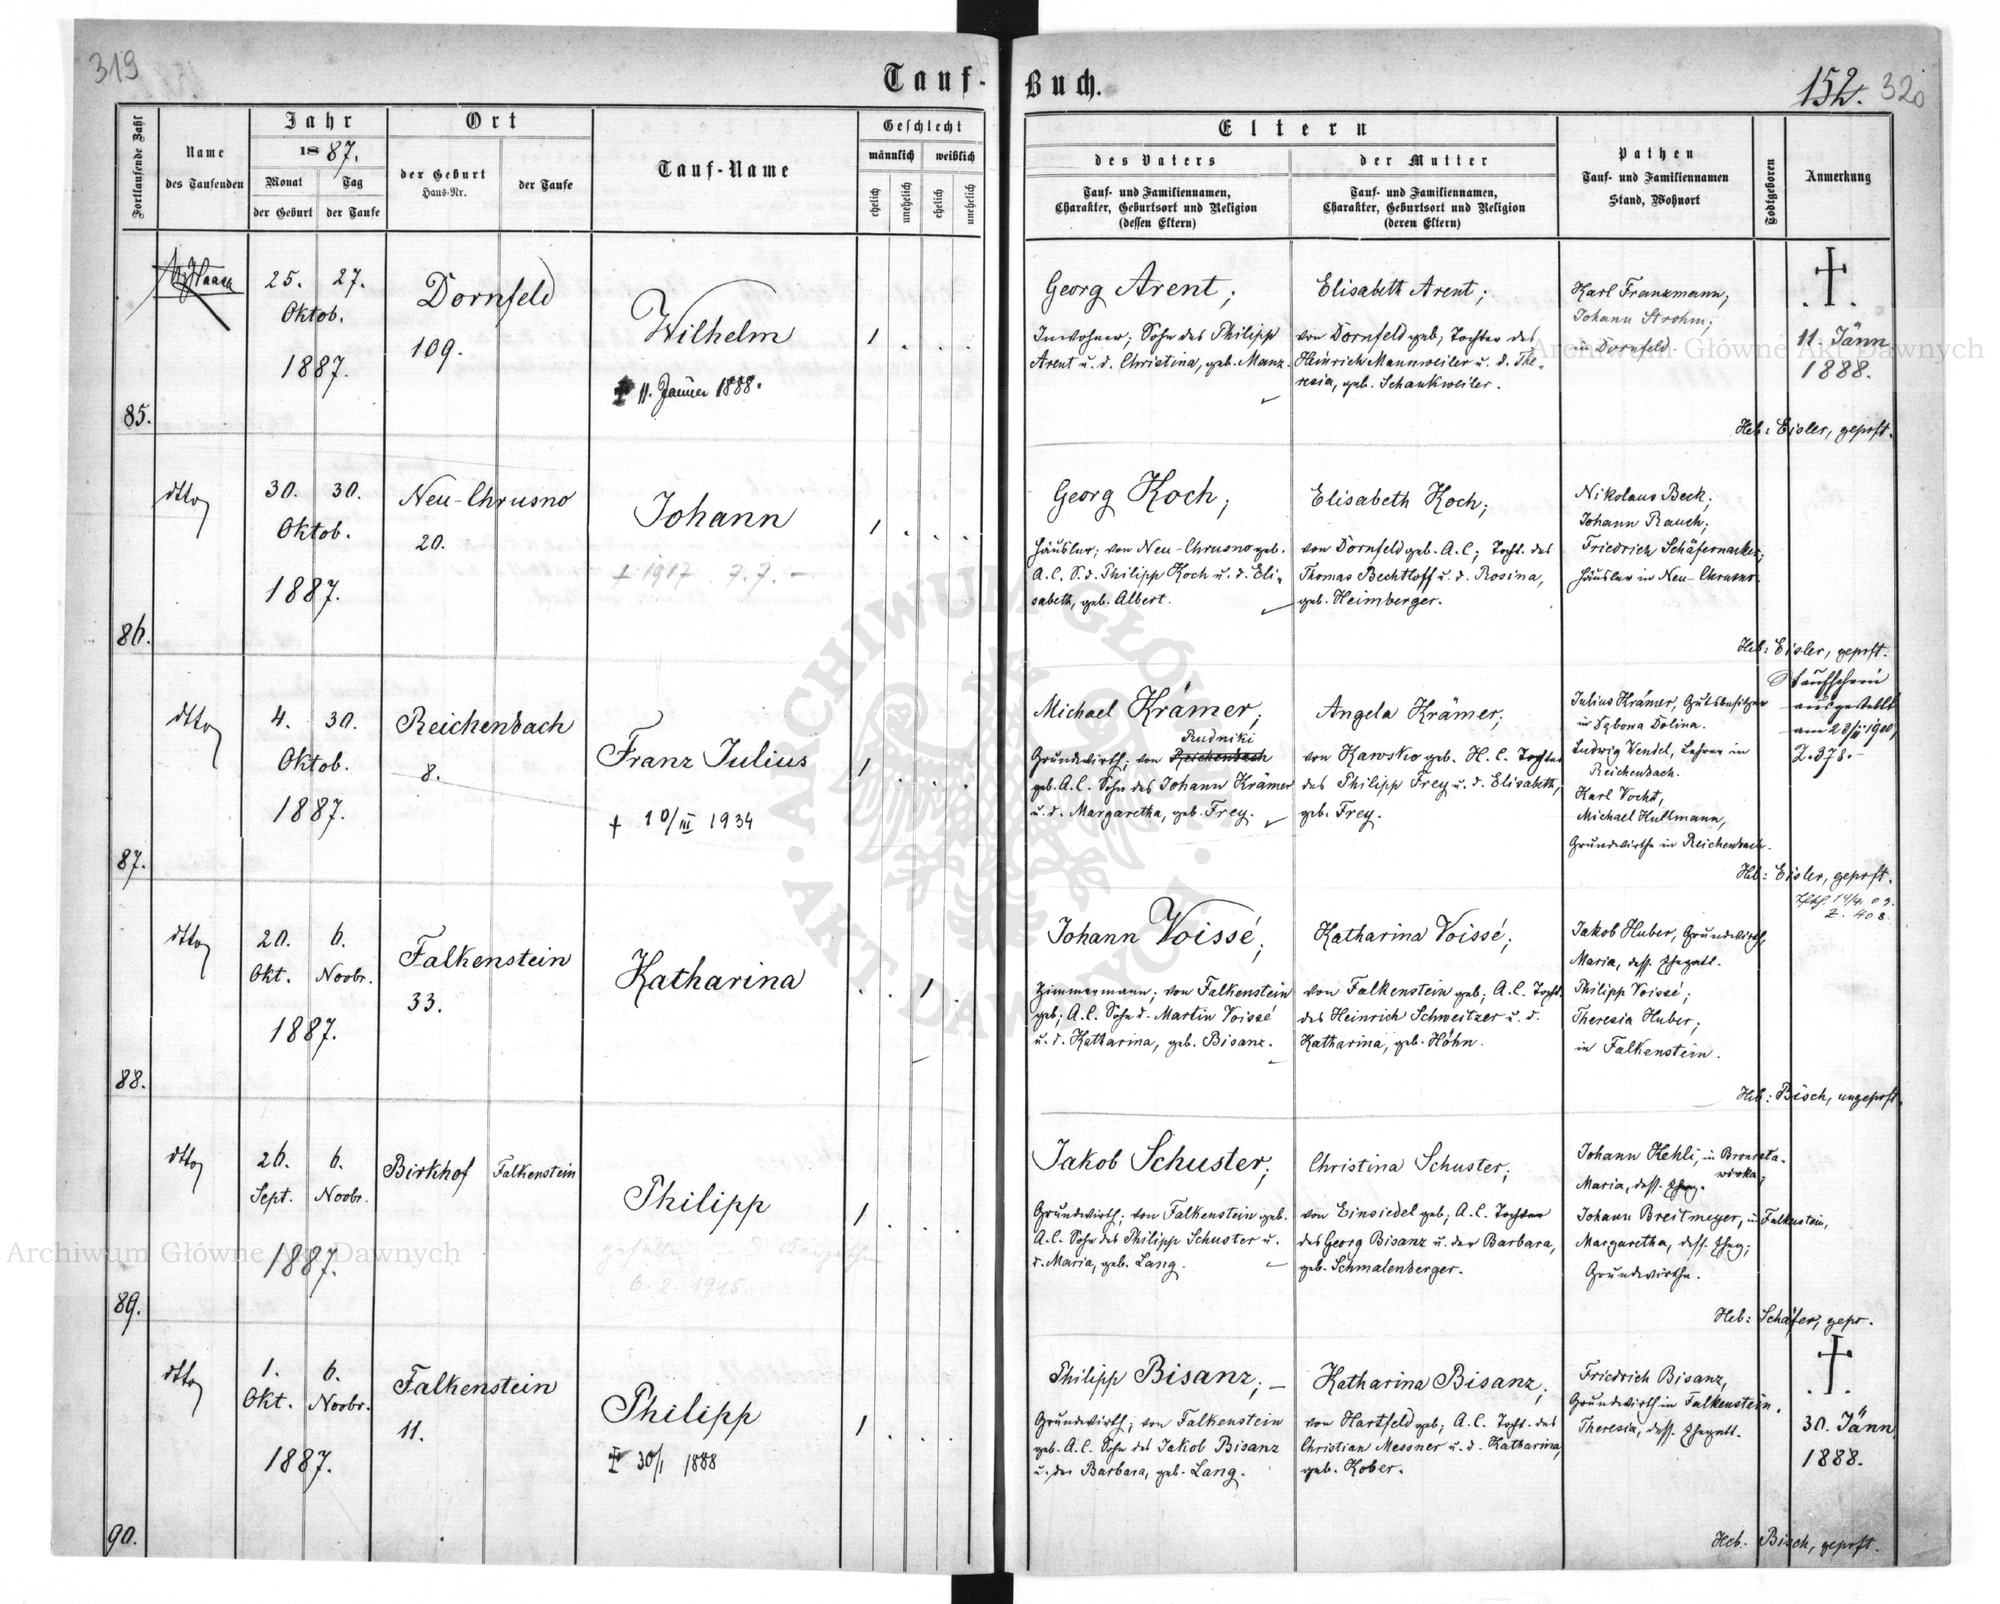 319
Tauf-
Buch.
152. 320
Fortlaufende Zahl
Name
des Taufenden
Jahr
1887.
Monat
der Geburt
Tag
der Taufe
Ort
der Geburt
Haus-Nr.
der Taufe
Tauf-Name
Geschlecht
männlich
weiblich
ehelich
unehelich
ehelich
unehelich
Eltern
des Vaters
Tauf- und Familiennamen,
Charakter, Geburtsort und Religion
(dessen Eltern)
der Mutter
Tauf- und Familiennamen,
Charakter, Geburtsort und Religion
(deren Eltern)
Pathen
Tauf- und Familiennamen
Stand, Wohnort
Todtgeboren
Anmerkung
85.
25. 27.
Oktob.
1887.
Dornfeld
109.
Wilhelm
† 11. Jänner 1888.
1 . . .
Georg Arent;
Inwohner; Sohn des Philipp
Arent u. d. Christina, geb. Manz.
Elisabeth Arent;
von Dornfeld geb; Tochter des
Heinrich Mannweiler u. d. The-
resia, geb. Schankweiler.
Karl Franzmann;
Johann Strohm;
in Dornfeld.
†
11. Jänn
1888.
Heb: Eisler, geprft.
86.
dtto
30. 30.
Oktob.
1887.
Neu-Chrusno
20.
Johann
† 1917 7.7. -
1 . . .
Georg Koch;
Häusler; von Neu-Chrusno geb.
A.C. S.d. Philipp Koch u. d. Eli-
sabeth, geb. Albert.
Elisabeth Koch;
von Dornfeld geb. A.C; Tocht. des
Thomas Bechtloff u. d. Rosina,
geb. Heimberger.
Nikolaus Beck;
Johann Rauch;
Friedrich Schäfernacker;
Häusler in Neu-Chrusno.
Heb: Eisler, geprft.
87.
dtto
4. 30.
Oktob.
1887.
Reichenbach
8.
Franz Julius
† 10/III 1934
1 . . .
Michael Krämer;
Rudniki
Grundwirth; von Reichenbach
geb. A.C. Sohn des Johann Krämer
u. d. Margaretha, geb. Frey.
Angela Krämer;
von Kawsko geb. H.C. Tochter
des Philipp Frey u. d. Elisabeth,
geb. Frey.
Julius Krämer, Gutsbesitzer
in Dębowa Dolina.
Ludwig Wendel, Lehrer in
Reichenbach.
Karl Vocht,
Michael Kullmann,
Grundwirthe in Reichenbach.
Taufschein
ausgestellt
am 28/II 1900,
Z. 378.-
Heb: Eisler, geprft.
88.
dtto
20. 6.
Okt. Novbr.
1887.
Falkenstein
33.
Katharina
. . 1 .
Johann Voissé;
Zimmermann; von Falkenstein
geb; A.C. Sohn d. Martin Voissé
u. d. Katharina, geb. Bisanz.
Katharina Voissé;
von Falkenstein geb; A.C. Tocht.
des Heinrich Schweitzer u. d.
Katharina, geb. Höhn.
Jakob Huber, Grundwirth,
Maria, dess. Ehegatt.
Philipp Voissé;
Theresia Huber;
in Falkenstein.
Z. 408.
Heb: Bisch, ungeprft.
89.
dtto
26. 6.
Sept. Novbr.
1887.
Birkhof
Falkenstein
Philipp
6. 2. 1915.
1 . . .
Jakob Schuster;
Grundwirth; von Falkenstein geb.
A.C. Sohn des Philipp Schuster u.
d. Maria, geb. Lang.
Christina Schuster;
von Einsiedel geb; A.C. Tochter
des Georg Bisanz u. der Barbara,
geb. Schmalenberger.
Johann Kehli, in
Maria, dess. Eheg.
Johann Breitmeyer, in Falkenstein,
Margaretha, dess. Eheg;
Grundwirthe.
Heb: Schäfer, gepr.
90.
dtto
1. 6.
Okt. Novbr.
1887.
Falkenstein
11.
Philipp
† 30/I 1888
1 . . .
Philipp Bisanz; -
Grundwirth; von Falkenstein
geb. A.C. Sohn des Jakob Bisanz
u. der Barbara, geb. Lang.
Katharina Bisanz;
von Hartfeld geb; A.C. Tocht. des
Christian Messner u. d. Katharina,
geb. Kober.
Friedrich Bisanz,
Grundwirth in Falkenstein.
Theresia, dess. Ehegatt.
†
30. Jänn
1888.
Heb. Bisch, geprft.
Archiwum Główne Akt Dawnych
Archiwum Główne Akt Dawnych
ARCHIWUM GŁÓWNE
AKT DAWNYCH